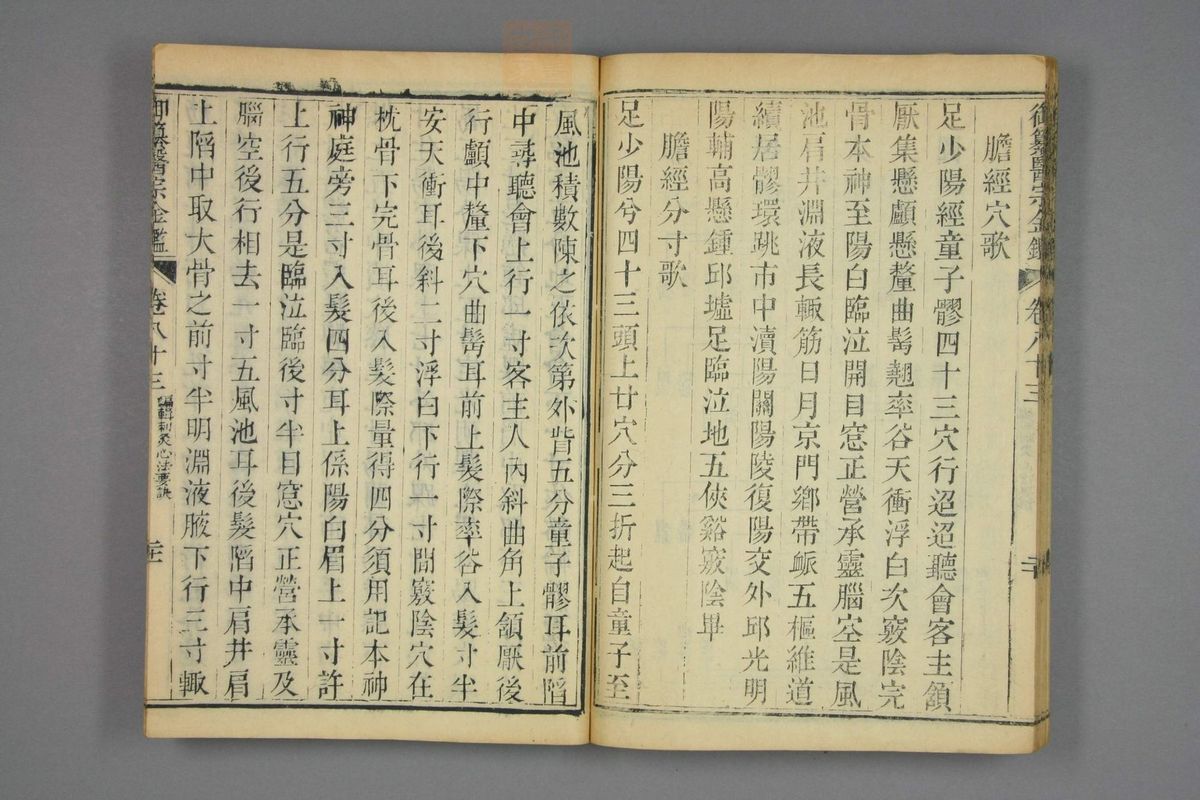 御纂醫宗金鑑 卷八十三 二十
膽經穴歌
足少陽經童子髎四十三穴行迢迢聽會客主頷
厭集懸顱懸釐曲髩翹率谷天衝浮白次竅陰完
骨本神至陽白臨泣開目窓正營承靈腦空是風
池肩井淵液長輒筋日月京門鄉帶䘑五樞維道
續居髎環跳市中瀆陽關陽陵復陽交外邱光明
陽輔高懸鍾邱墟足臨泣地五俠谿竅陰畢
膽經分寸歌
足少陽兮四十三頭上廿穴分三折起自童子至
風池積數陳之依次第外眥五分童子髎耳前陷
中尋聽會上行一寸客主人內斜曲角上頷厭後
行顱中釐下穴曲髩耳前上髮際率谷入髮寸半
安天衝耳後斜二寸浮白下行一寸間竅陰穴在
枕骨下完骨耳後入髮際量得四分須用記本神
神庭旁三寸入髮四分耳上係陽白眉上一寸許
上行五分是臨泣臨後寸半目窓穴正營承靈及
腦空後行相去一寸五風池耳後髮陷中肩井肩
上陷中取大骨之前寸半明淵液腋下行三寸輒
御纂醫宗金鑑 卷八十三 編輯刺灸心法要訣 二十一